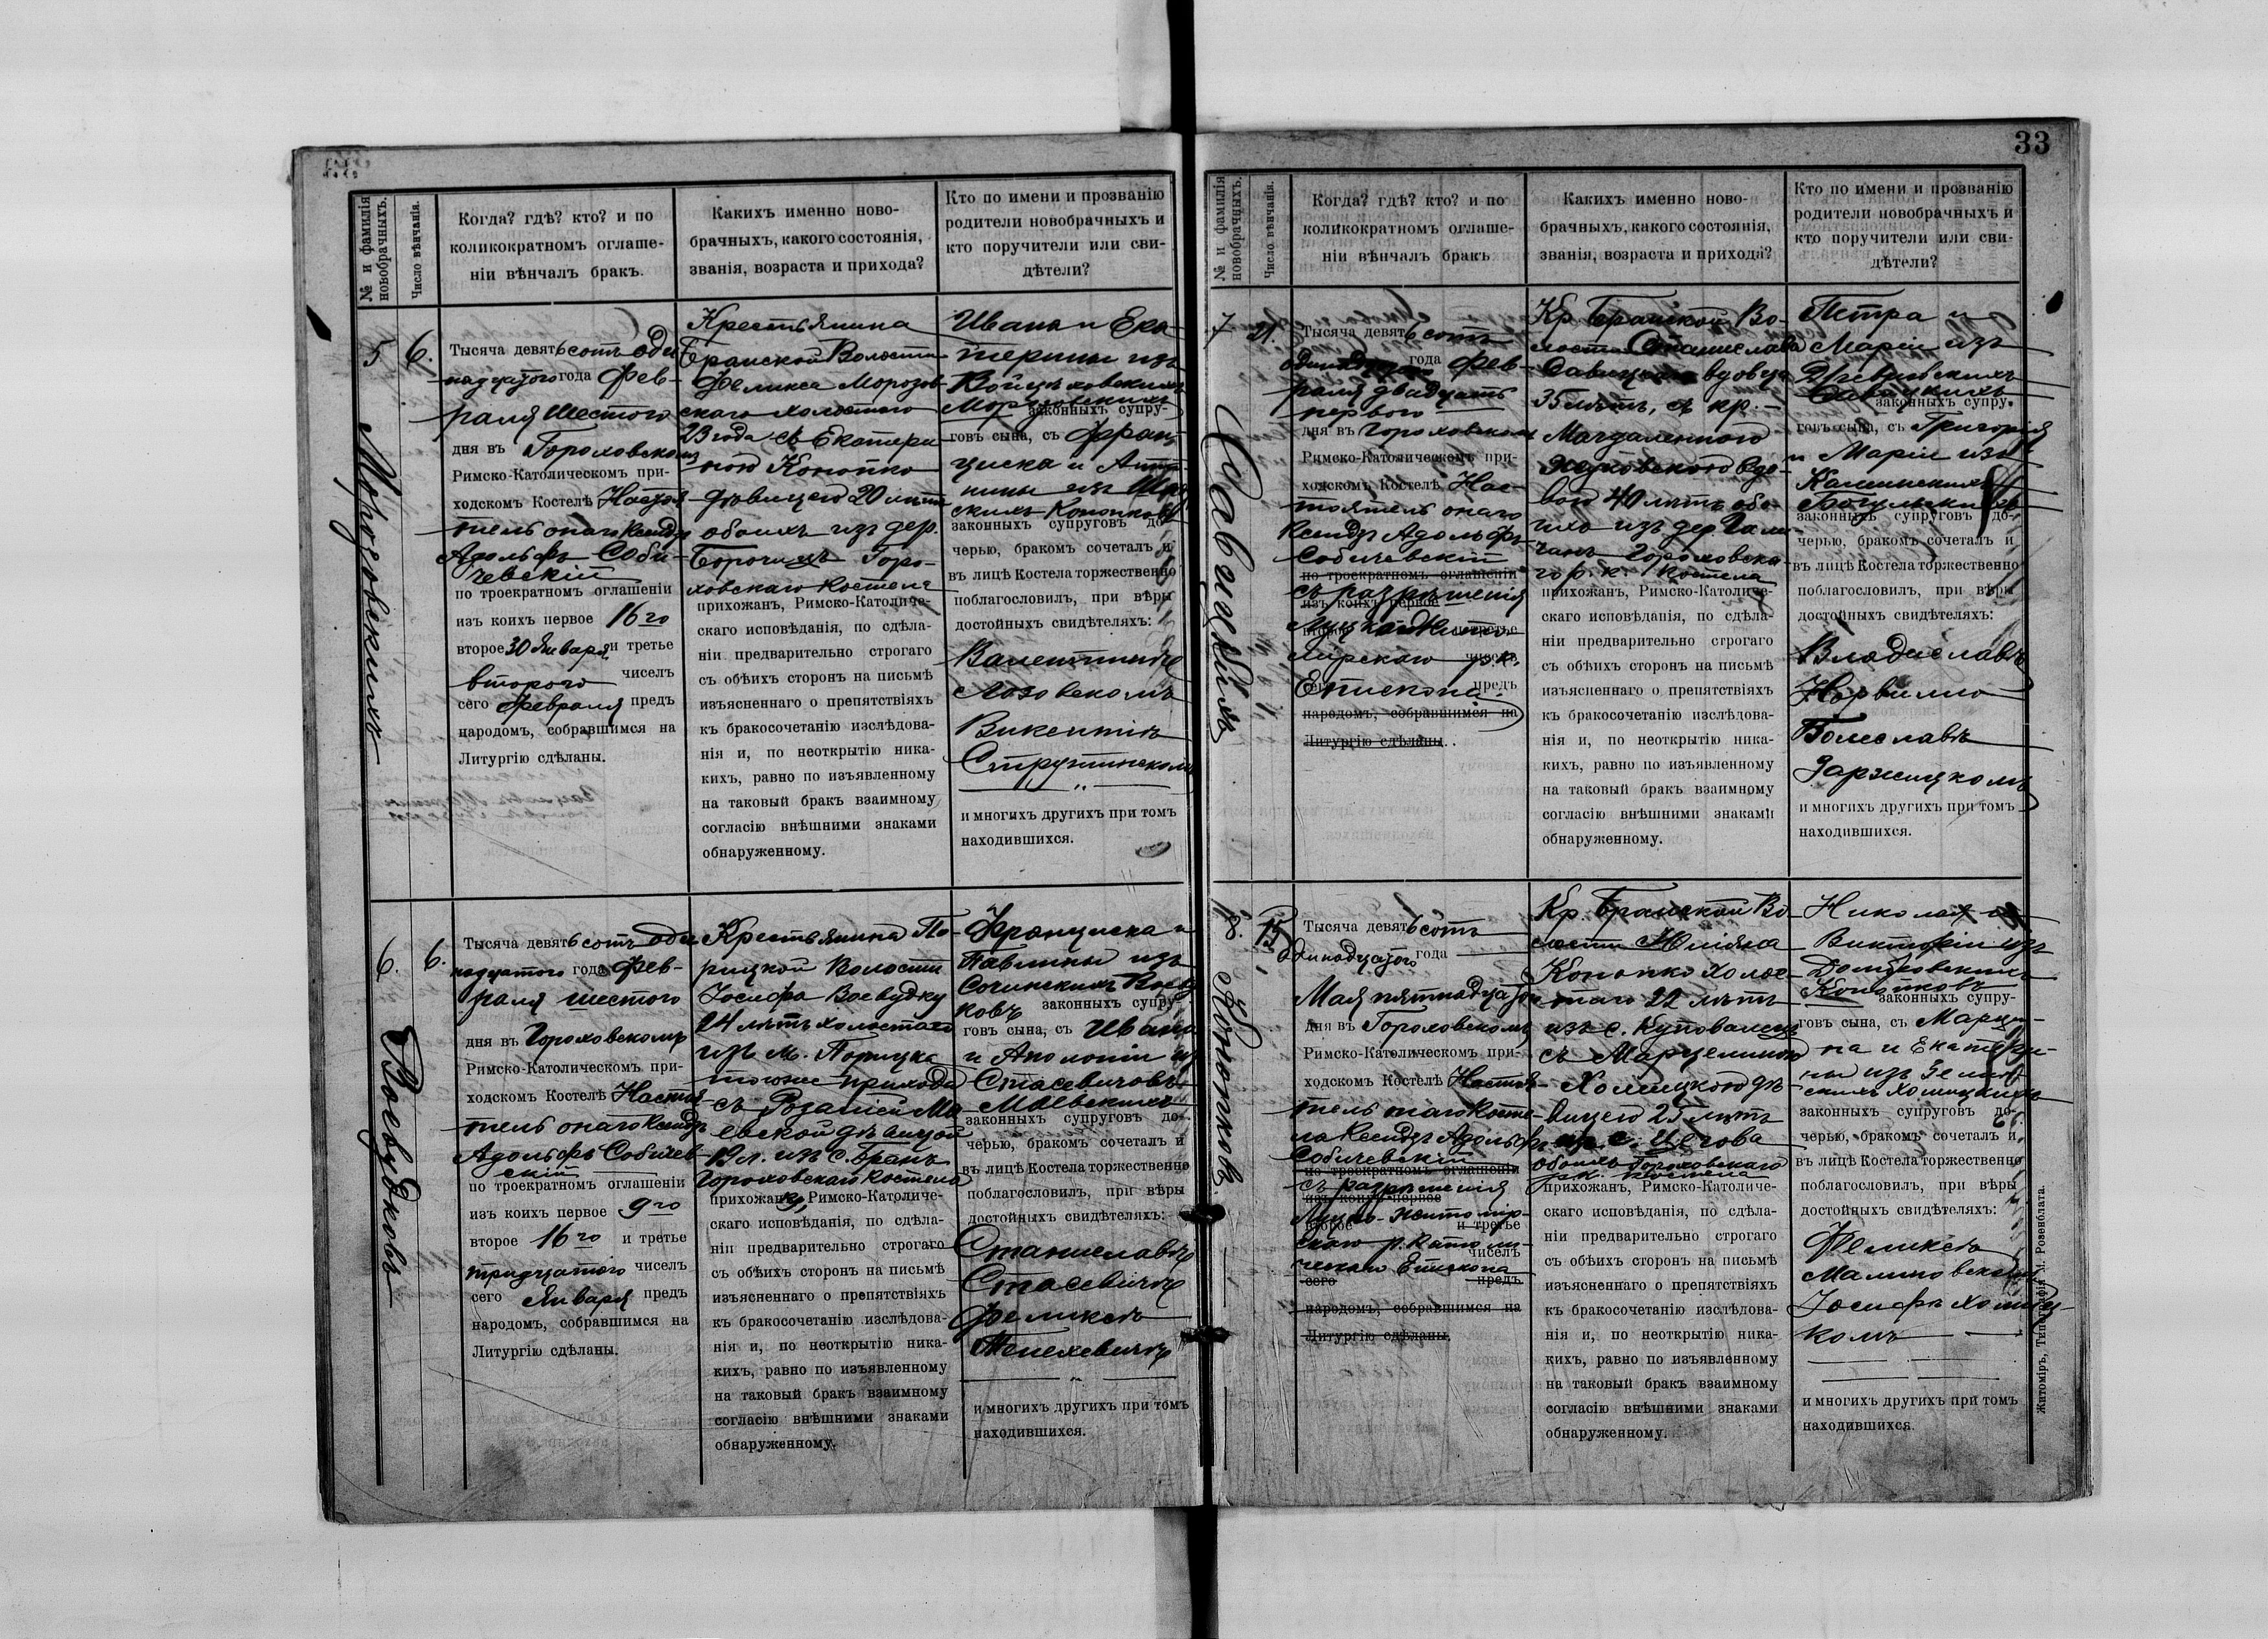 33
№ и фамилія новобрачныхъ.
Число вѣнчанія.
Когда? гдѣ? кто? и по
коликократномъ оглаше-
ніи вѣнчалъ бракъ.
Какихъ именно ново-
брачныхъ, какого состоянія,
званія, возраста и прихода?
Кто по имени и прозванію
родители новобрачныхъ и
кто поручители или сви-
дѣтели?
5
Морозовскихъ
6.
Тысяча девятьсотъ оди
надцатого года Фев-
раля шестого
дня въ Гороховскомъ
Римско-Католическомъ при-
ходскомъ Костелѣ Настоя-
тель онаго Ксендзъ
Адольфъ Соби-
чевскій
по троекратномъ оглашеніи
изъ коихъ первое 16го
второе 30 Января и третье
второго чиселъ
сего Февраля предъ
народомъ, собравшимся на
Литургію сдѣланы.
Крестьянина
Бранской Волости
Феликса Морозов-
скаго холостого
23 года съ Екатери-
ною Конопко
дѣвицею 20 лѣтъ
обоихъ изъ дер.
Горо-
ховскаго Костела
прихожанъ, Римско-Католиче-
скаго исповѣданія, по сдѣла-
ніи предварительно строгаго
съ обѣихъ сторонъ на письмѣ
изъясненнаго о препятствіяхъ
къ бракосочетанію изслѣдова-
нія и, по неоткрытію ника-
кихъ, равно по изъявленному
на таковый бракъ взаимному
согласію внѣшними знаками
обнаруженному.
Ивана и Ека-
терины изъ
Войцѣховскихъ
Морозовскихъ
законныхъ супру-
говъ сына, съ Фран-
циска и
изъ
Конопковъ
законныхъ супруговъ до-
черью, бракомъ сочеталъ и
въ лицѣ Костела торжественно
поблагословилъ, при вѣры
достойныхъ свидѣтеляхъ:
Валентинѣ
Лозовскомъ
Викентіѣ
Струтинскомъ
и многихъ другихъ при томъ
находившихся.
6.
Воевудковъ
6.
Тысяча девятьсотъ оди
надцатого года Фев-
раля шестого
дня въ Гороховскомъ
Римско-Католическомъ при-
ходскомъ Костелѣ Настоя-
тель онаго Ксендзъ
Адольфъ Собичев-
скій
по троекратномъ оглашеніи
изъ коихъ первое 9го
второе 16го и третье
тридцатого чиселъ
сего Января предъ
народомъ, собравшимся на
Литургію сдѣланы.
Крестьянина По-
рицкой Волости
Іосифа Воевудку
24 лѣтъ холостаго
изъ м. Порицка
тогоже прихода
съ Розаліей Ма-
евской дѣвицей
19 л. изъ с. Бранъ
Гороховскаго Костела
прихожанъ, Римско-Католиче-
скаго исповѣданія, по сдѣла-
ніи предварительно строгаго
съ обѣихъ сторонъ на письмѣ
изъясненнаго о препятствіяхъ
къ бракосочетанію изслѣдова-
нія и, по неоткрытію ника-
кихъ, равно по изъявленному
на таковый бракъ взаимному
согласію внѣшними знаками
обнаруженному.
Франциска и
Павлины изъ
Сочинскихъ Воевуд-
ковъ законныхъ супру-
говъ сына, съ Ивана
и Аполоніи изъ
Стасевичовъ
Маевскихъ
законныхъ супруговъ до-
черью, бракомъ сочеталъ и
въ лицѣ Костела торжественно
поблагословилъ, при вѣры
достойныхъ свидѣтеляхъ:
Станиславѣ
Стасевичѣ
Феликсѣ
и многихъ другихъ при томъ
находившихся.
№ и фамилія новобрачныхъ.
Число вѣнчанія.
Когда? гдѣ? кто? и по
коликократномъ оглаше-
ніи вѣнчалъ бракъ
Какихъ именно ново-
брачныхъ, какого состоянія,
званія, возраста и прихода?
Кто по имени и прозванію
родители новобрачныхъ и
кто поручители или сви-
дѣтели?
7
Савицкихъ
21.
Тысяча девятьсотъ
года Фев-
раля двадцать
перваго
дня въ Гороховскомъ
Римско-Католическомъ при-
ходскомъ Костелѣ Нас-
тоятель онаго
Ксендзъ Адольфъ
Собичевскій
по троекратномъ оглашеніи
съ разрѣшенія
изъ коихъ первое
Епископа.
предъ
народомъ, собравшимся на
Литургію сдѣланы.
Кр. Бранской Во-
лости Станислава
Савицкаго вдовца
35 лѣтъ, съ кр.
Магдаленною
вдо-
вою 40 лѣтъ обо-
ихъ изъ дер. Гали-
чанъ Гороховска-
го р. к. Костела
прихожанъ, Римско-Католиче-
скаго исповѣданія, по сдѣла-
ніи предварительно строгаго
съ обѣихъ сторонъ на письмѣ
изъясненнаго о препятствіяхъ
къ бракосочетанію изслѣдова-
нія и, по неоткрытію ника-
кихъ, равно по изъявленному
на таковый бракъ взаимному
согласію внѣшними знаками
обнаруженному.
Петра и
Маріи изъ
Савицкихъ
законныхъ супру-
говъ сына, съ Григорія
и Маріи изъ
законныхъ супруговъ до-
черью, бракомъ сочеталъ и
въ лицѣ Костела торжественно
поблагословилъ, при вѣры
достойныхъ свидѣтеляхъ:
Владиславѣ
Болеславѣ
Заржицкомъ
и многихъ другихъ при томъ
находившихся.
8.
Конопковъ.
15
Тысяча девятьсотъ
одинадцатого года
Мая пятнадцатого
дня въ Гороховскомъ
Римско-Католическомъ при-
ходскомъ Костелѣ Настоя-
тель того Косте-
ла Ксендзъ Адольфъ
Собичевскій
по троекратномъ оглашеніи
съ разрѣшенія
изъ коихъ первое
Луцко-Житомір-
второе и третье
скаго р. католи-
чиселъ
ческаго Епископа
сего предъ
народомъ, собравшимся на
Литургію сдѣланы.
Кр. Бранской Во-
лости Юліяна
Конопко холос-
таго 22 лѣтъ
изъ с. Куповалецъ
съ Марцелиною
Хомицкою дѣ-
вицею 25 лѣтъ
обоихъ Гороховскаго
р. к. Костела
прихожанъ, Римско-Католиче-
скаго исповѣданія, по сдѣла-
ніи предварительно строгаго
съ обѣихъ сторонъ на письмѣ
изъясненнаго о препятствіяхъ
къ бракосочетанію изслѣдова-
нія и, по неоткрытію ника-
кихъ, равно по изъявленному
на таковый бракъ взаимному
согласію внѣшними знаками
обнаруженному.
Николая и
Викторіи изъ
Домбковскихъ
Конопковъ
законныхъ супру-
говъ сына, съ Марци-
на и Екатери-
ны изъ
Хомицкихъ
законныхъ супруговъ до-
черью, бракомъ сочеталъ и
въ лицѣ Костела торжественно
поблагословилъ, при вѣры
достойныхъ свидѣтеляхъ:
Феликсѣ
Малиновскомъ
Іосифѣ Хомиц-
комъ
и многихъ другихъ при томъ
находившихся.
Житоміръ, Типографія М. Розенблата.